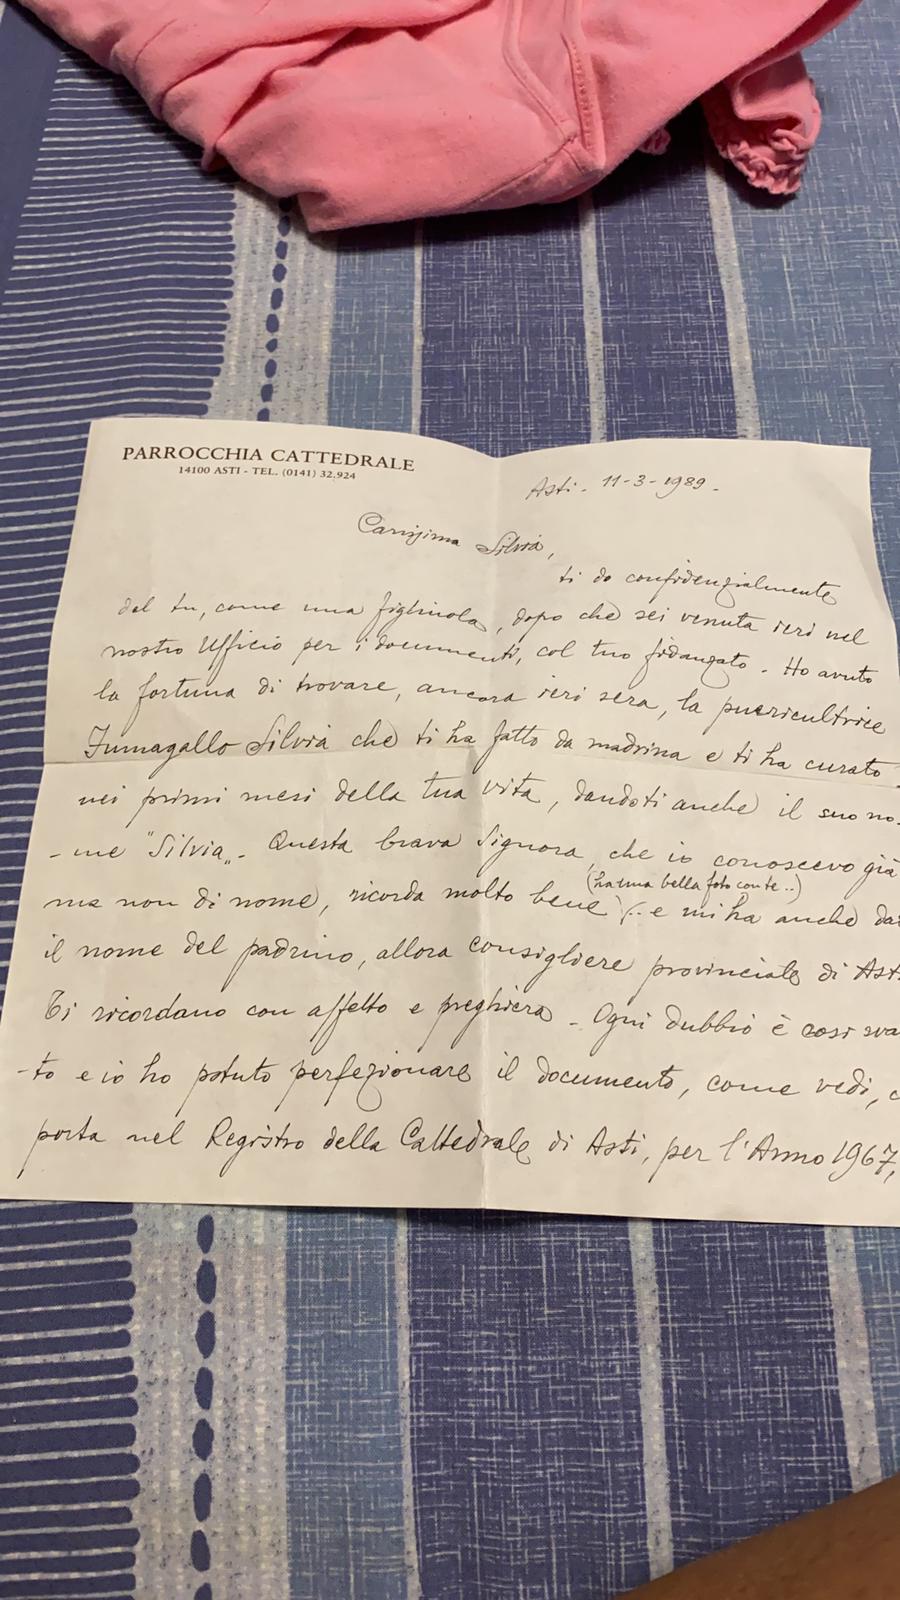 PARROCCHIA CATTEDRALE
14100 ASTI - TEL. (0141) 32.924
Asti - 11-3-1989 -
Carissima Silvia,
ti do confidenzialmente
del tu, come una figliuola, dopo che sei venuta ieri nel
nostro Ufficio per i documenti, col tuo fidanzato - Ho avuto
la fortuna di trovare, ancora ieri sera, la puericultrice
Fumagallo Silvia che ti ha fatto da madrina e ti ha curato
nei primi mesi della tua vita, dandoti anche il suo no-
- me "Silvia„ - Questa brava Signora, che io conoscevo già
(ha una bella foto con te..)
ma non di nome, ricorda molto bene (.. e mi ha anche
il nome del padrino, allora consigliere provinciale di
Ti ricordano con affetto e preghiera - Ogni dubbio è così
-to e io ho potuto perfezionare il documento, come vedi,
porta nel Registro della Cattedrale di Asti, per l'Anno 1967,